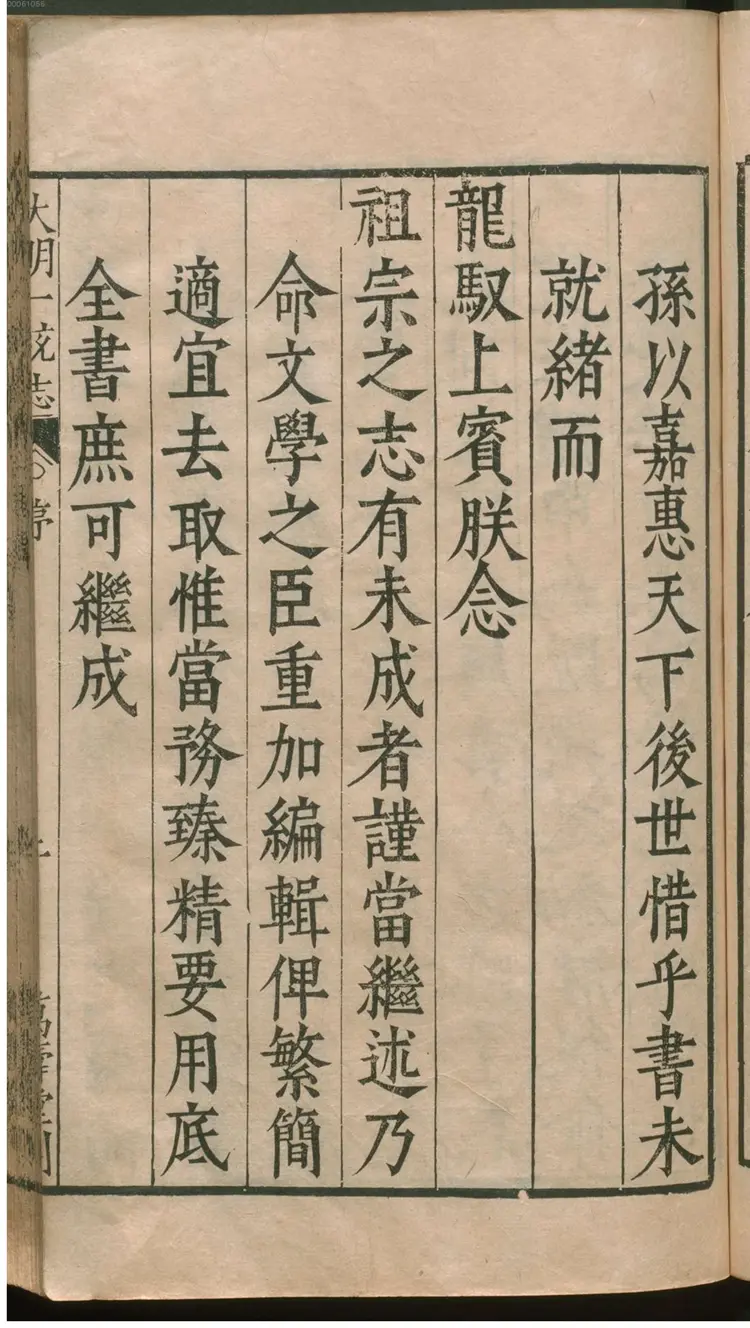 孫以嘉惠天下後世惜乎書未
就緒而
龍馭上賓朕念
祖宗之志有未成者謹當繼述乃
命文學之臣重加編輯俾繁簡
適宜去取惟當務臻精要用底
全書庶可繼成
大明一統志 序
00061056